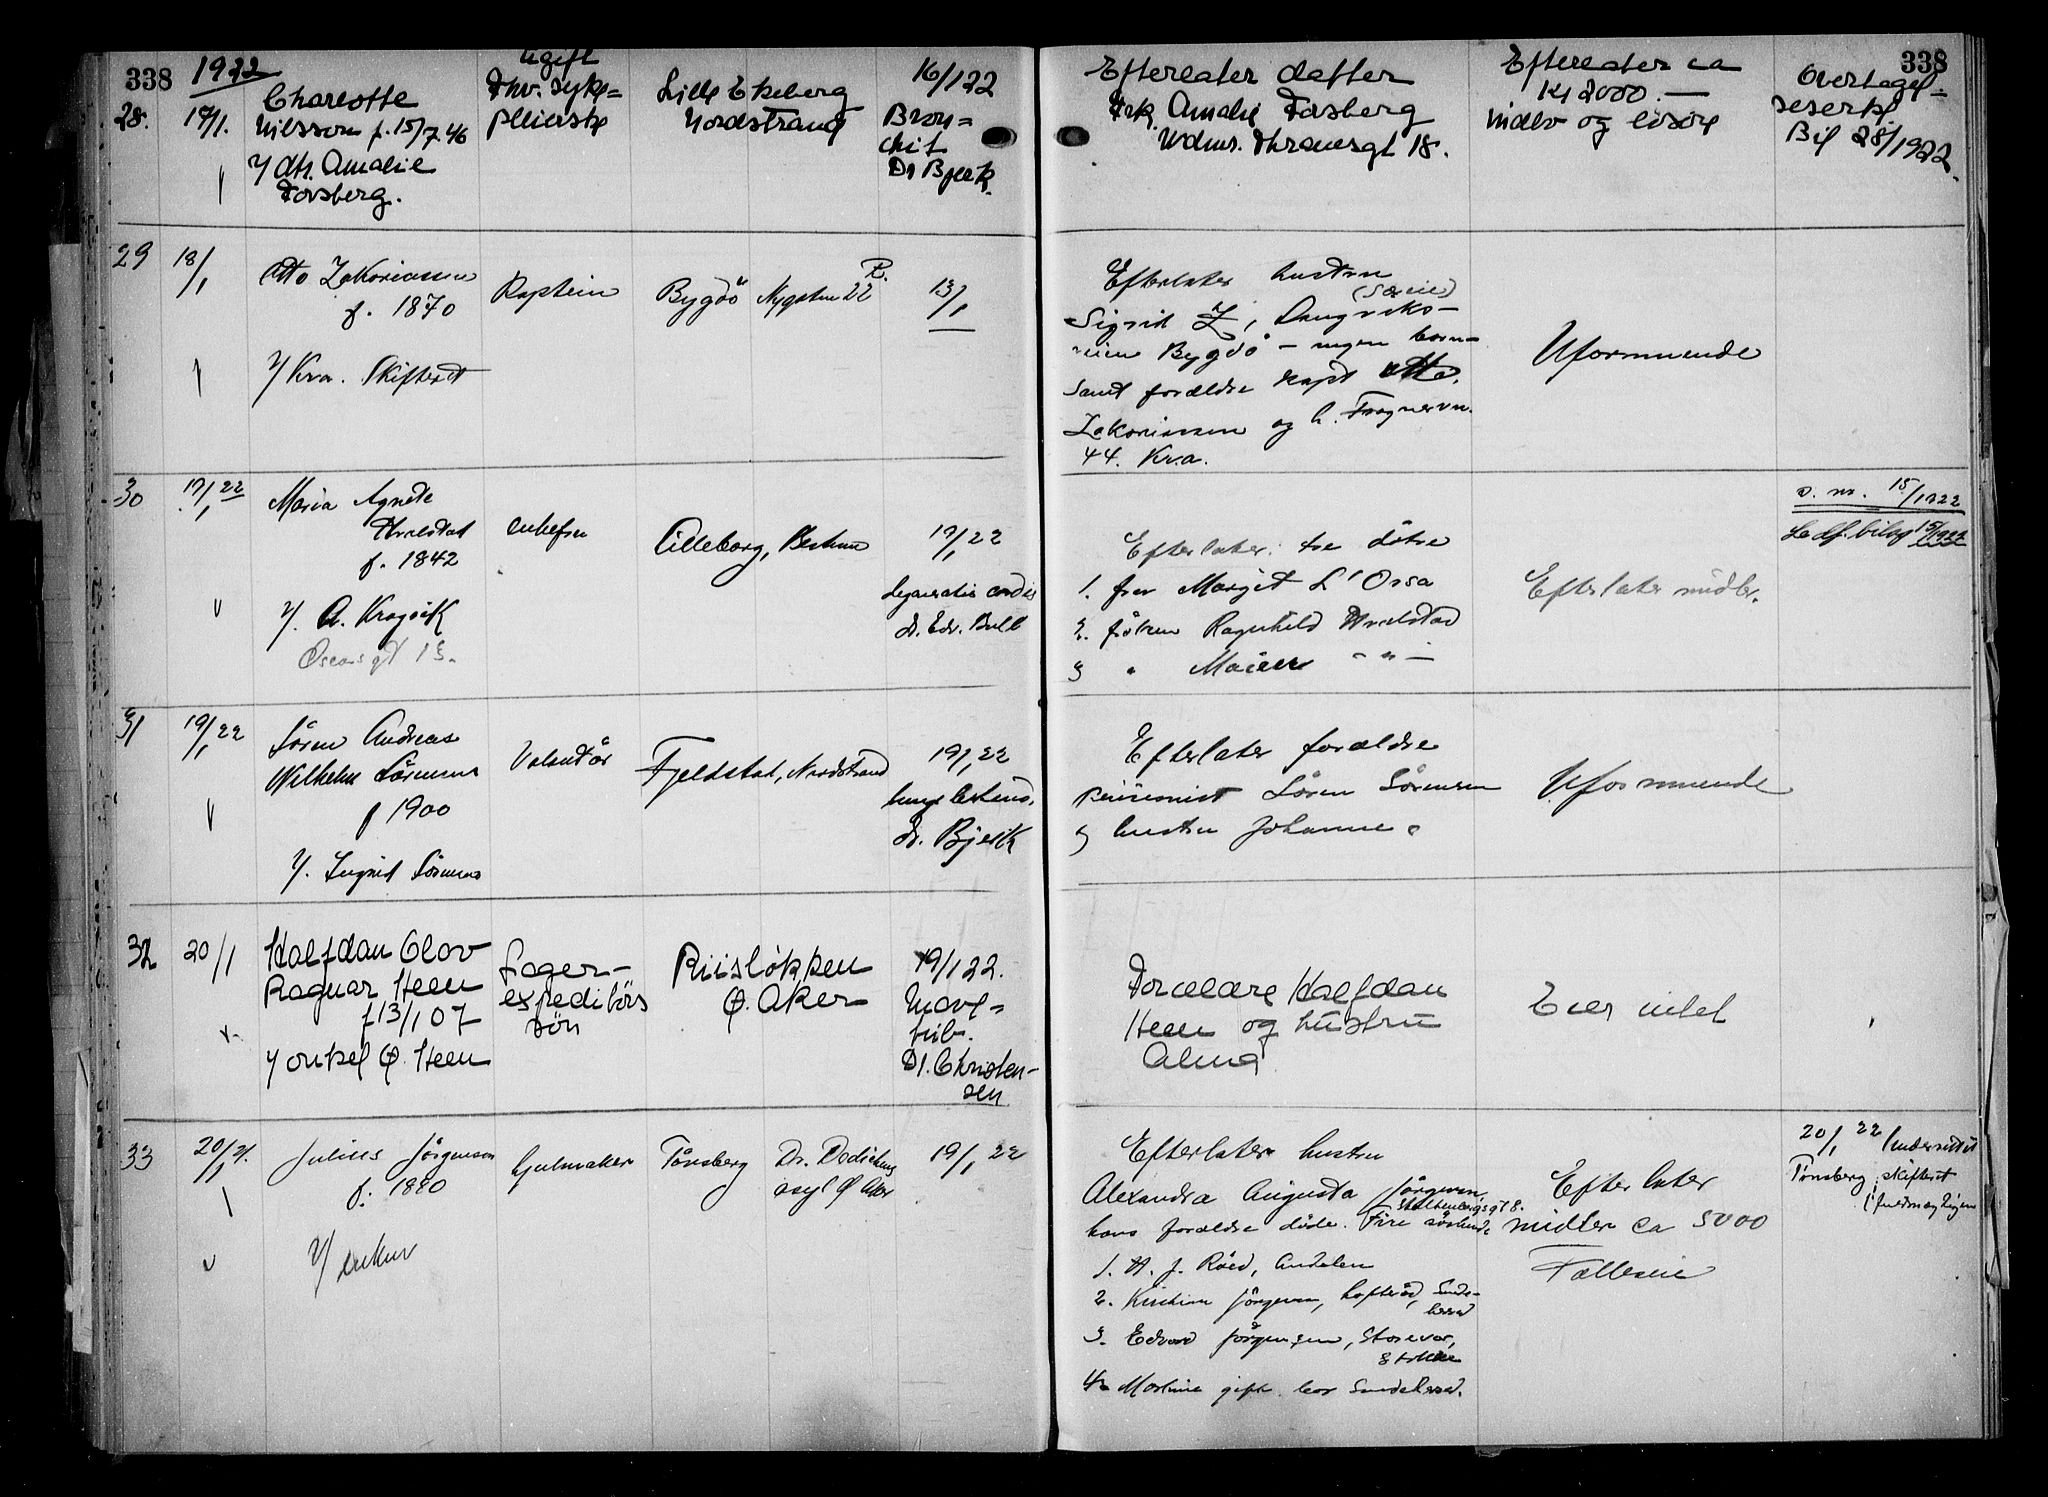 338
1922
28.
17/1.
Charlotte
Nilsson f. 15/7 46
v/ dtr. Amalie
Forsberg.
Ugift
Fhv. syke=
pleierske
Lille Ekeberg
Nordstrand
16/1 22
Bron=
chit
Dr Bjerk.
338
Efterlater datter
Frk. Amalie Forsberg
Thranesgt 18.
Efterlater ca
Kr 2000.—
indbo og løsøre
Overtagel=
seserkl
Bil 28/1922.
29
18/1
Otto Zakoriassen
f. 1870
v/ Kra. Skifteret
Kaptein
Bygdö
22
13/1
Efterlater hustru
(Særeie)
Sigrid Z,
Bygdö — ingen barn —
samt forældre kapt Otto.
Zakoriassen og h. Frognervn.
44. Kr.a.
Uformuende
30
17/1 22
Maria Agnete
Hvalstad
f. 1842
v/. A. Kragvik
Oscarsgt 13.
enkefru
Lilleborg, Bestum
17/1 22
degeneratio cordis
dr. Edv. Bull
Efterlater: tre døtre
1. fru Margit L'Orsa
2. frøken Ragnhild Hvalstad
3 " — " —
Efterlater midler.
s. nr. 15/1922
bilag 15/1922
31
19/1 22
Sören Andreas
Wilhelm Sörensen
f 1900
v/. Ingrid Sörensen
Volontör
Fjeldstad, Nordstrand
19/1 22
dr. Bjerk
Efterlater forældre
pensionist Sören Sörensen
og hustru Johanne.
Uformuende
32
20/1
Halfdan Olav
Ragnar Heen
f 13/1 07
v/ onkel O. Heen
Lager-
expeditörs
sön
Riisløkken
Ø. Aker
19/1 22.
Mave=
tub.
Dr. Christen-
sen
Forældre Halfdan
Heen og hustru
Alma
Eier intet
33
20/1 22.
Julius Jörgensen
f. 1880
v/ enken
hjulmaker
Tönsberg
Dr. Dedichens
asyl Ø Aker
19/1 22
Efterlater hustru
Alexandra Augusta Jörgensen,
Stoltenbergsgt 8.
hans forældre døde. Fire søskende
1. H. J. Röed,
2. Kristian Jörgensen,
3. Edvard Jörgensen, Storevar,
Stokke
4. Martine gift
Efterlater
midler ca 5000
Fælleseie
20/1 22 Underrettet
Tönsberg skifteret